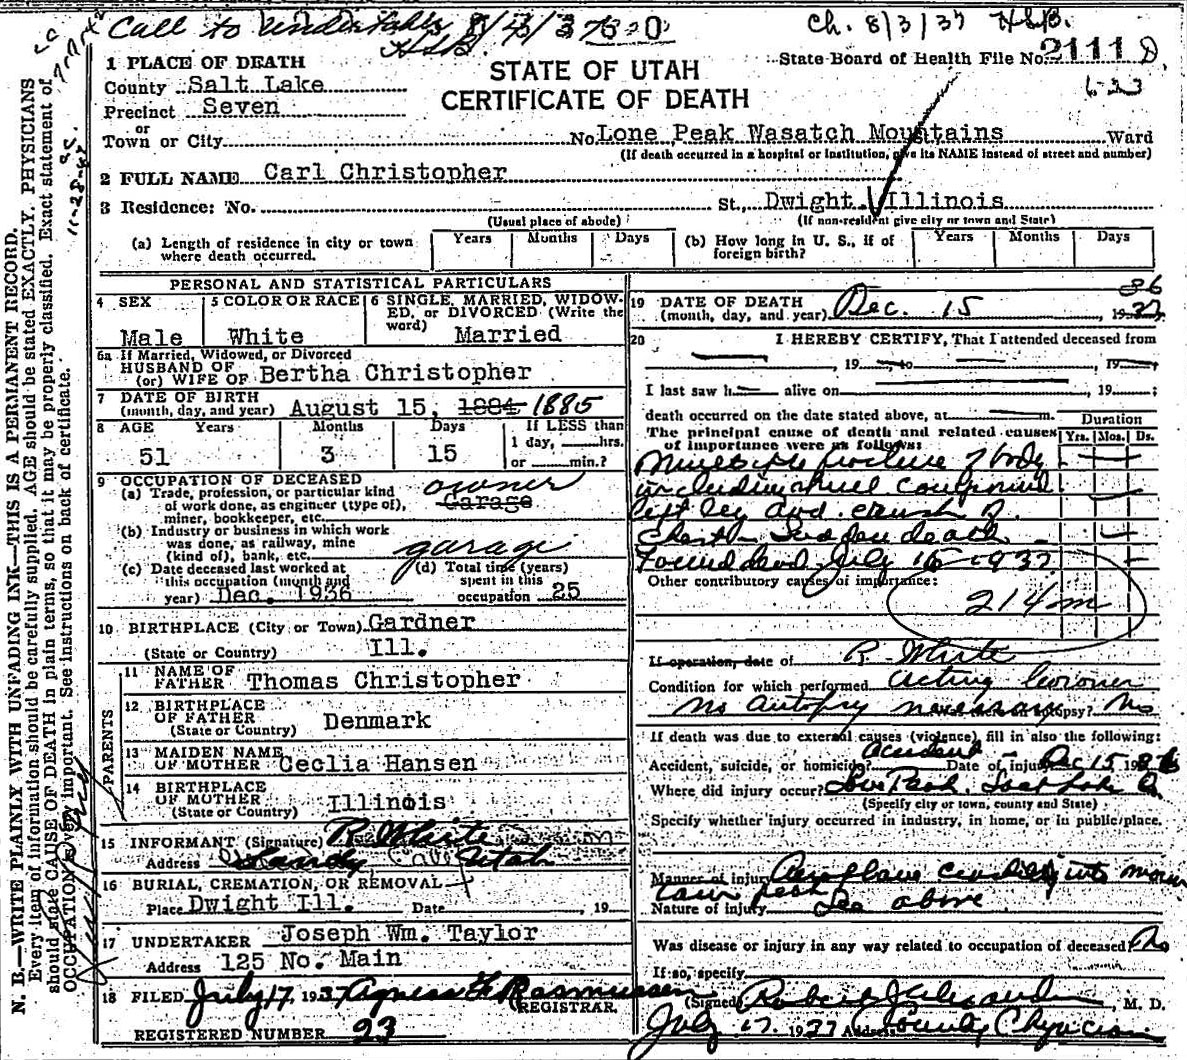 Call to Undertaker 8/3/37
H.S.B.
Ch. 8/3/37 H.S.B.
State Board of Health File No. 2111 D
6-23
STATE OF UTAH
CERTIFICATE OF DEATH
1 PLACE OF DEATH
County Salt Lake
Precinct Seven
or
Town or City No. Lone Peak Wasatch Mountains Ward
(If death occurred in a hospital or institution, give its NAME instead of street and number)
2 FULL NAME Carl Christopher
3 Residence: No. St., Dwight, Illinois
(Usual place of abode) (If non-resident give city or town and State)
(a) Length of residence in city or town where death occurred. Years Months Days
(b) How long in U. S., if of foreign birth? Years Months Days
PERSONAL AND STATISTICAL PARTICULARS
4 SEX Male
5 COLOR OR RACE White
6 SINGLE, MARRIED, WIDOWED, or DIVORCED (Write the word) Married
6a If Married, Widowed, or Divorced
HUSBAND OF
(or) WIFE OF Bertha Christopher
7 DATE OF BIRTH
(month, day, and year) August 15, 1884 1885
8 AGE Years Months Days If LESS than
1 day, hrs.
51 3 15 or min.?
9 OCCUPATION OF DECEASED
(a) Trade, profession, or particular kind of work done, as engineer (type of), miner, bookkeeper, etc. Garage owner
(b) Industry or business in which work was done, as railway, mine (kind of), bank, etc. garage
(c) Date deceased last worked at this occupation (month and year) Dec. 1936
(d) Total time (years) spent in this occupation 25
10 BIRTHPLACE (City or Town) Gardner
(State or Country) Ill.
PARENTS
11 NAME OF FATHER Thomas Christopher
12 BIRTHPLACE OF FATHER (State or Country) Denmark
13 MAIDEN NAME OF MOTHER Ceclia Hansen
14 BIRTHPLACE OF MOTHER (State or Country) Illinois
15 INFORMANT (Signature) R. White
Address Sandy Utah
16 BURIAL, CREMATION, OR REMOVAL
Place Dwight Ill. Date , 19
17 UNDERTAKER Joseph Wm. Taylor
Address 125 No. Main
18 FILED July 17, 1937 Agness G Rasmussen
REGISTRAR.
REGISTERED NUMBER 23
19 DATE OF DEATH
(month, day, and year) Dec. 15 1937 36
20 I HEREBY CERTIFY, That I attended deceased from
, 19 , to , 19 ,
I last saw h alive on , 19 ;
death occurred on the date stated above, at m.
The principal cause of death and related causes of importance were as follows: Duration
Yrs. Mos. Ds.
Multiple fracture of body
including skull compound
left leg and crush of
chest - Sudden death
Found dead July 15 - 1937
Other contributory causes of importance:
214m
If operation, date of R. White
Condition for which performed Acting Coroner
No Autopsy necessary autopsy? No
If death was due to external causes (violence), fill in also the following:
Accident, suicide, or homicide? Accident Date of injury Dec 15 1936
Where did injury occur? Lone Peak. Salt Lake Co.
(Specify city or town, county and State)
Specify whether injury occurred in industry, in home, or in public place.
Manner of injury Aeroplane crashed into moun
tain peak
Nature of injury See above
Was disease or injury in any way related to occupation of deceased No
If so, specify
(Signed) Robert Alexander M. D.
July 17, 1937 Address County Physician
N. B.—WRITE PLAINLY WITH UNFADING INK—THIS IS A PERMANENT RECORD.
Every item of information should be carefully supplied. AGE should be stated EXACTLY. PHYSICIANS
should state CAUSE OF DEATH in plain terms, so that it may be properly classified. Exact statement of
OCCUPATION is very important. See instructions on back of certificate.